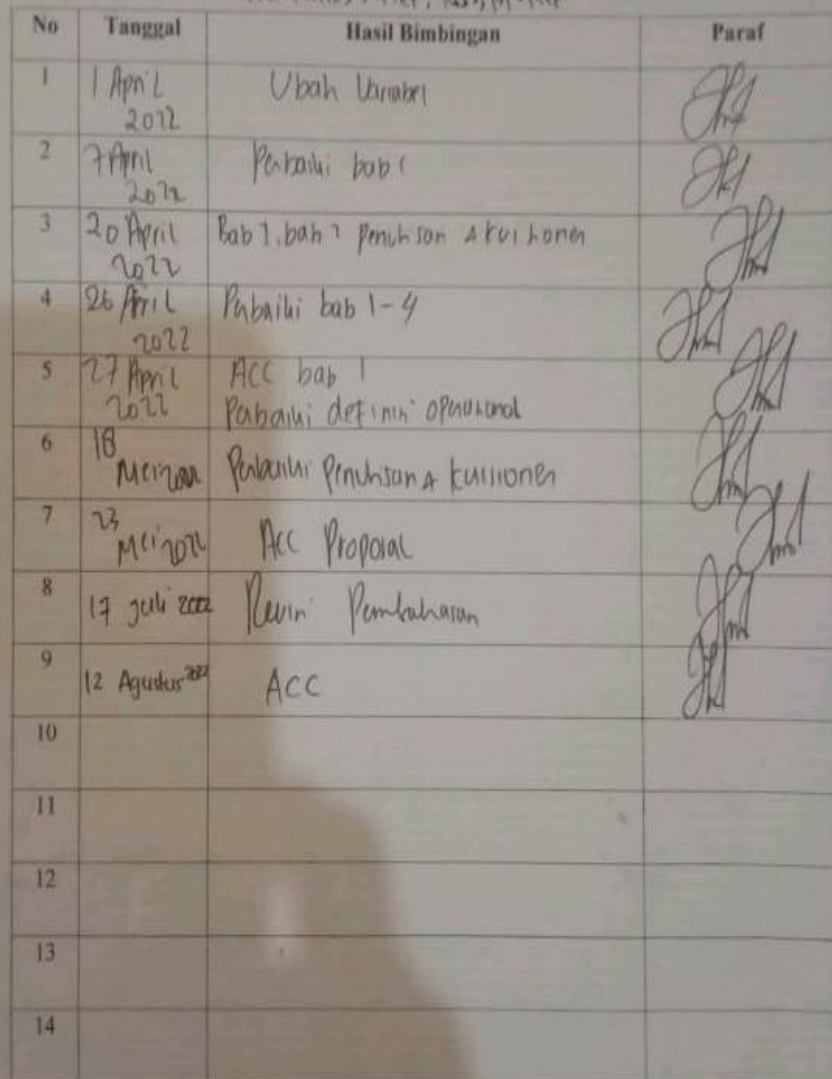 No Tanggal Hasil Bimbingan Paraf
1 1 April 2022 Ubah Variabel
2 7 April 2022 Perbaiki bab 1
3 20 April 2022 Bab 1, bab 2 penulisan & kuisioner
4 26 April 2022 Perbaiki bab 1-4
5 27 April 2022 ACC bab 1
Perbaiki definisi operasional
6 18 Mei 2022 Perbaiki Penulisan & kuisioner
7 23 Mei 2022 Acc Proposal
8 17 Juli 2022 Revisi Pembahasan
9 12 Agustus 2022 ACC
10
11
12
13
14